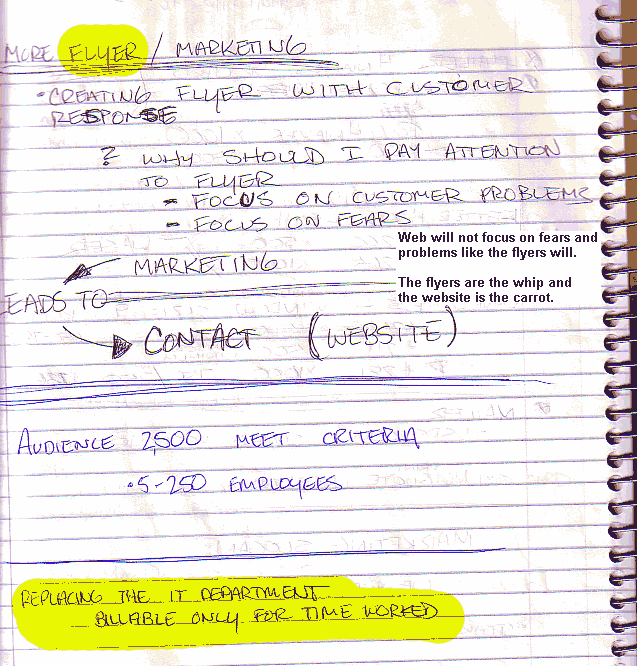 MORE FLYER / MARKETING
• CREATING FLYER WITH CUSTOMER
RESPONSE
? WHY SHOULD I PAY ATTENTION
TO FLYER
- FOCUS ON CUSTOMER PROBLEMS
- FOCUS ON FEARS
Web will not focus on fears and
problems like the flyers will.
The flyers are the whip and
the website is the carrot.
MARKETING
LEADS TO
CONTACT (WEBSITE)
AUDIENCE 2,500 MEET CRITERIA
• 5-250 EMPLOYEES
REPLACING THE IT DEPARTMENT
BILLABLE ONLY FOR TIME WORKED